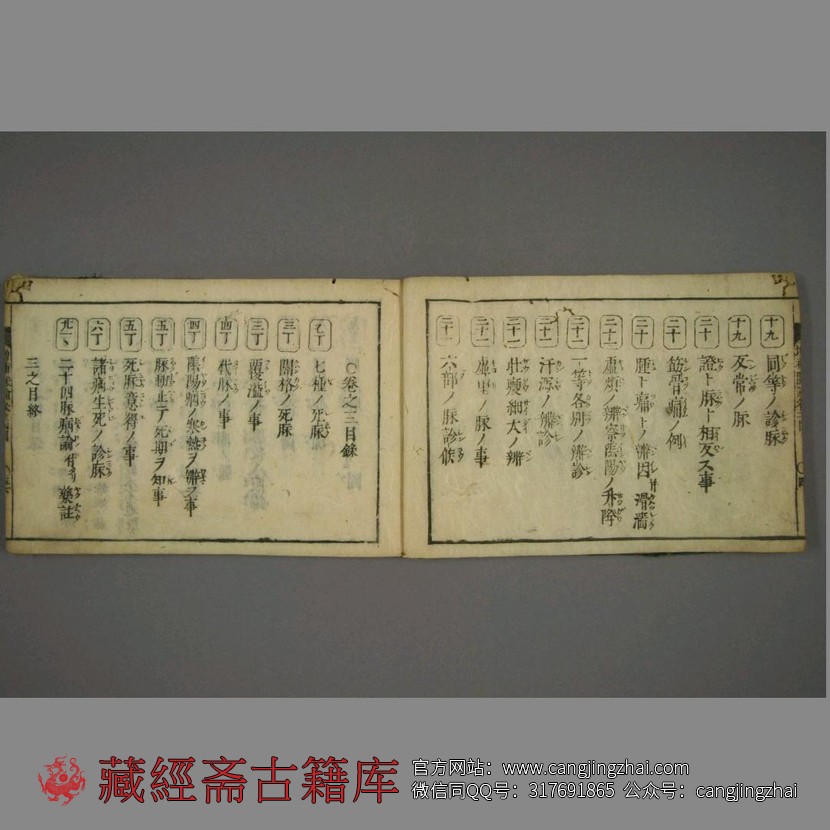 十九 同等ノ診脉
十九 反常ノ脉
二十 證ト脉ト相反ス事
二十 筋骨痛ノ例
二十 腫ト痛トノ辨因 滑濇
二十一 虚煩ノ辨寮陰陽ノ升降
二十一 一等各別ノ辨診
二十一 汗源ノ辨診
二十一 壮痩細大ノ辨
二十一 虚里ノ脉ノ事
二十一 六部ノ脉診候
○卷之三目録
乙丁 七種ノ死脉
三丁 關格ノ死脉
三丁 覆溢ノ事
四丁 代脉ノ事
四丁 陰陽病ノ寒熱ヲ辨ズ事
五丁 脉動止テ死期ヲ知事
五丁 死脉意得ノ事
六丁 諸病生死ノ診脉
九丁 二十四脉病論 藥註
三之目終
藏經斋古籍库
官方网站：www.cangjingzhai.com
微信同QQ号：317691865 公众号：cangjingzhai